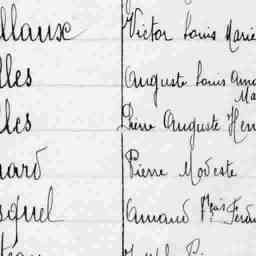 llaux Victor Louis Marie
lles Auguste Louis Ama
Ma
lles Pierre Auguste Hen
nard Pierre Modeste
squel Armand Fçois Ferdi